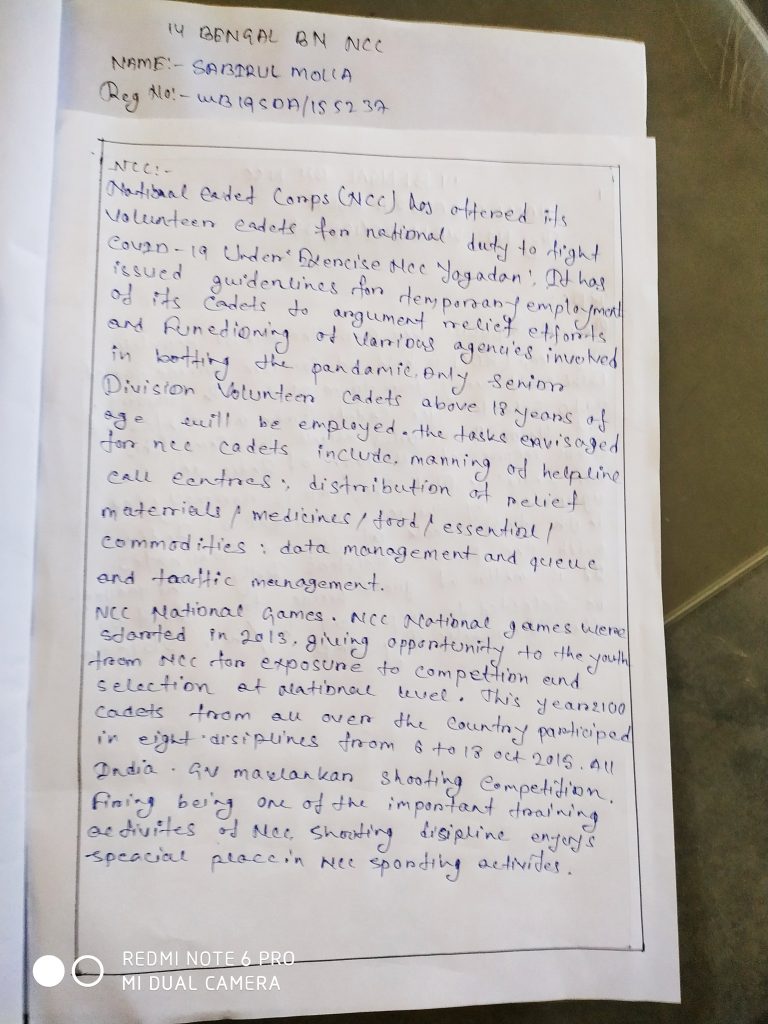 14 BENGAL BN NCC
NAME:- SABIRUL MOLLA
Reg No:- WB19SDA/155237
NCC:-
National Cadet Corps (NCC) has offered its
Volunteer cadets for national duty to fight
COVID-19 Under 'Exercise Ncc Yogadan'. It has
issued guidenlines for temporary employment
of its Cadets to argument relief efforts
and functioning of Various agencies involved
in botting the pandamic. Only Senior
Division Volunteer cadets above 18 years of
age will be employed. the tasks envisaged
for ncc cadets include, manning of helpline
call centres; distribution of relief
materials / medicines / food / essential /
commodities; data management and queue
and traffic management.
NCC National Games. NCC National games were
started in 2013, giving opportunity to the youth
from NCC for exposure to compettion and
selection at National level. This year 2100
cadets from all over the country participed
in eight disiplines from 6 to 18 oct 2015. All
India. GV mavlankar shooting Competition.
firing being one of the important training
activites of Ncc, Shooting disipline enjoys
speacial place in Ncc sporting activites.
REDMI NOTE 6 PRO
MI DUAL CAMERA